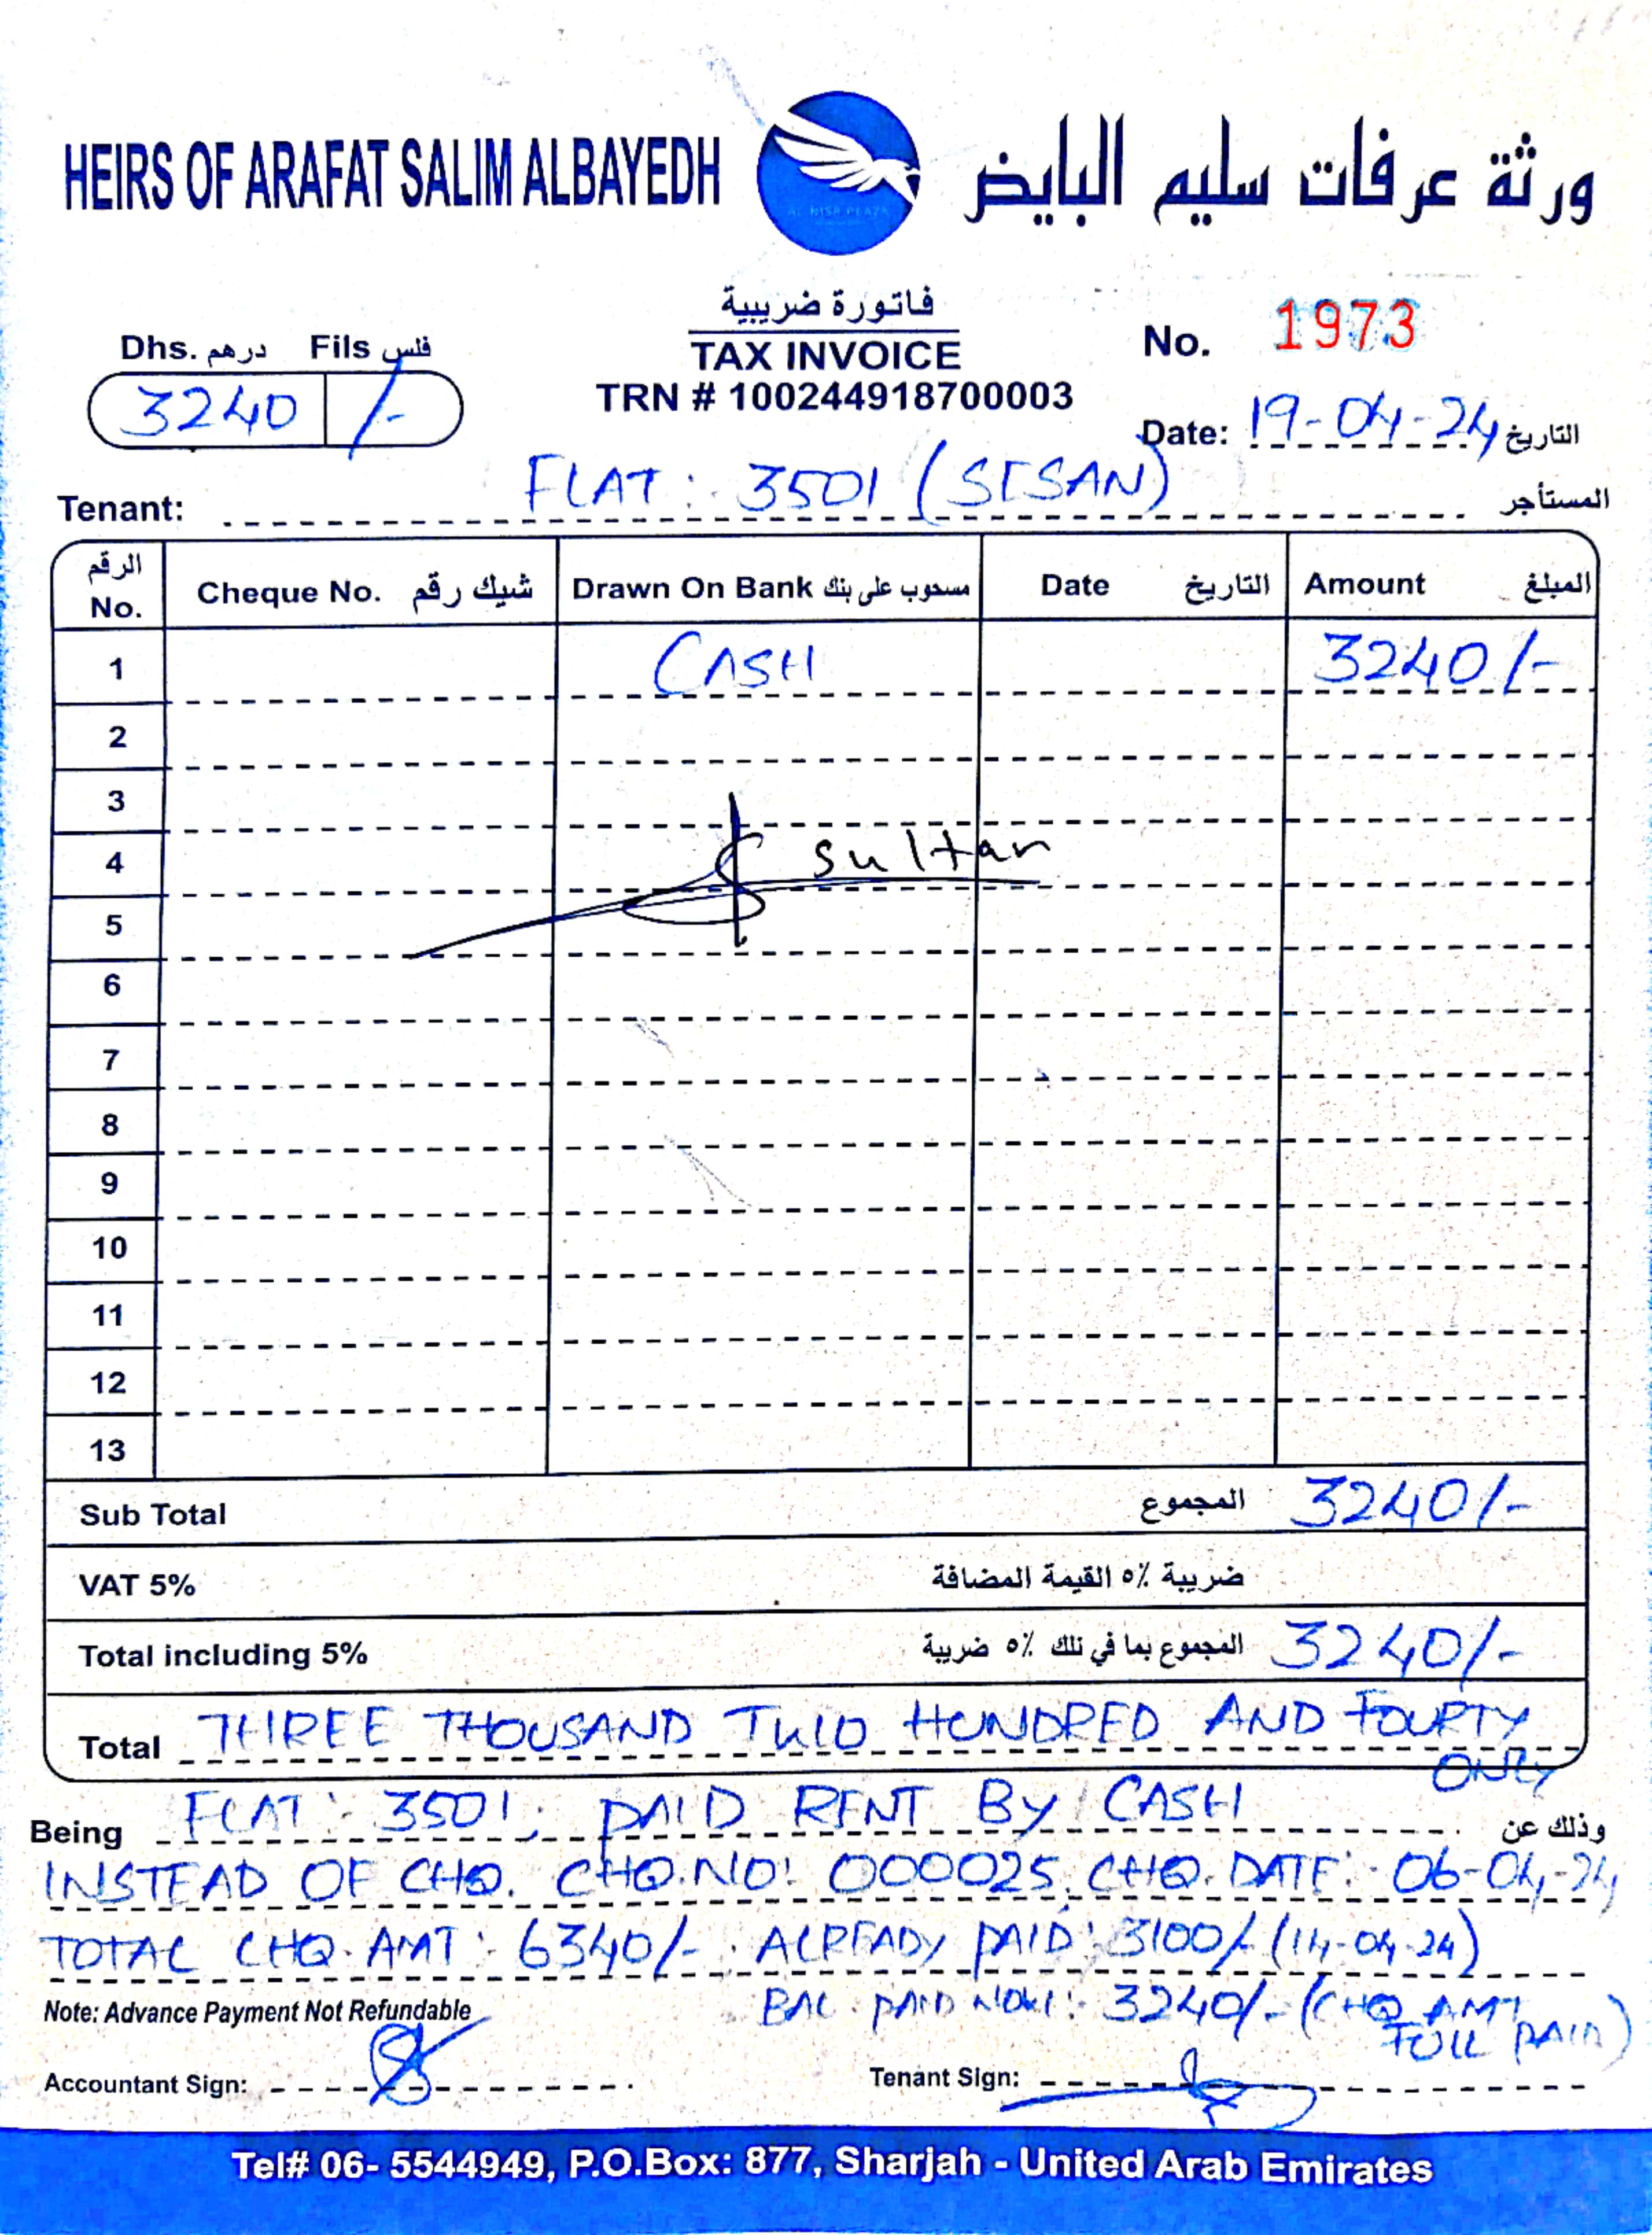 HEIRS OF ARAFAT SALIM ALBAYEDH
AL NISR PLAZA
ورثة عرفات سليم البايض
فاتورة ضريبية
TAX INVOICE
TRN # 100244918700003
Dhs. درهم Fils فلس
3240 /-
No. 1973
Date: 19-04-24 التاريخ
Tenant: FLAT: 3501 (SISAN) المستأجر
الرقم No. Cheque No. شيك رقم Drawn On Bank مسحوب على بنك Date التاريخ Amount المبلغ
1 CASH 3240/-
2
3
4 Sultan
5
6
7
8
9
10
11
12
13
Sub Total المجموع 3240/-
VAT 5% ضريبة ٥٪ القيمة المضافة
Total including 5% المجموع بما في تلك ٥٪ ضريبة 3240/-
Total THREE THOUSAND TWO HUNDRED AND FOURTY
ONLY
Being FLAT: 3501, PAID RENT BY CASH وذلك عن
INSTEAD OF CHQ. CHQ.NO: 000025, CHQ. DATE: 06-04-24
TOTAL CHQ. AMT: 6340/-. ALREADY PAID: 3100/- (14-04-24)
BAL. PAID NOW: 3240/- (CHQ AMT
FULL PAID)
Note: Advance Payment Not Refundable
Accountant Sign:
Tenant Sign:
Tel# 06- 5544949, P.O.Box: 877, Sharjah - United Arab Emirates